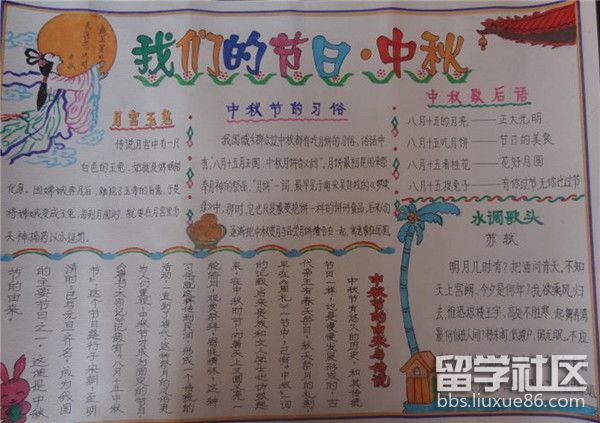 我们的节日·中秋
月宫玉兔
传说月宫中有一只
白色的玉兔，她就是嫦娥的
化身。因嫦娥奔月后，触犯
中秋节的习俗
我国城乡群众过中秋都有吃月饼的习俗，俗话中
有："八月十五月正圆，中秋月饼香又甜"。月饼最初是用来祭
奉月神的祭品，"月饼"一词，最早见于南宋吴自牧的《梦粱
录》中，那时，它也只是像菱花饼一样的饼形食品，后来人们
逐渐把中秋赏月与品尝月饼结合在一起，寓意家人团圆。
中秋歇后语
八月十五的月亮——正大光明
八月十五吃月饼——节日的美餐
八月十五看桂花——花好月圆
八月十五捉兔子——有你过节无你也过节
水调歌头
苏轼
明月几时有？把酒问青天，不知
天上宫阙，今夕是何年？我欲乘风归
去，
中秋节的由来与传说
中秋节有悠久的历史，和其他传统
节日一样，也是慢慢发展形成的，古
代帝王有春天祭日，秋天祭月的礼制，
早在《周礼》一书中，已有"中秋"一词
的记载。后来贵族和文人学士也仿效起
来，在中秋时节，对着天上又圆又亮一
轮皓月，观赏祭拜，寄托情怀，这种
习俗就这样传到民间，形成一个传统的
活动，一直到了唐代，这种祭月的风俗更
为人们重视，中秋节才成为固定的节日，
节"，这个节日盛行于宋朝，至明
清时，已与元旦齐名，成为我国
的主要节日之一。这便是中秋
节的由来。
留学社区
bbs.liuxue86.com